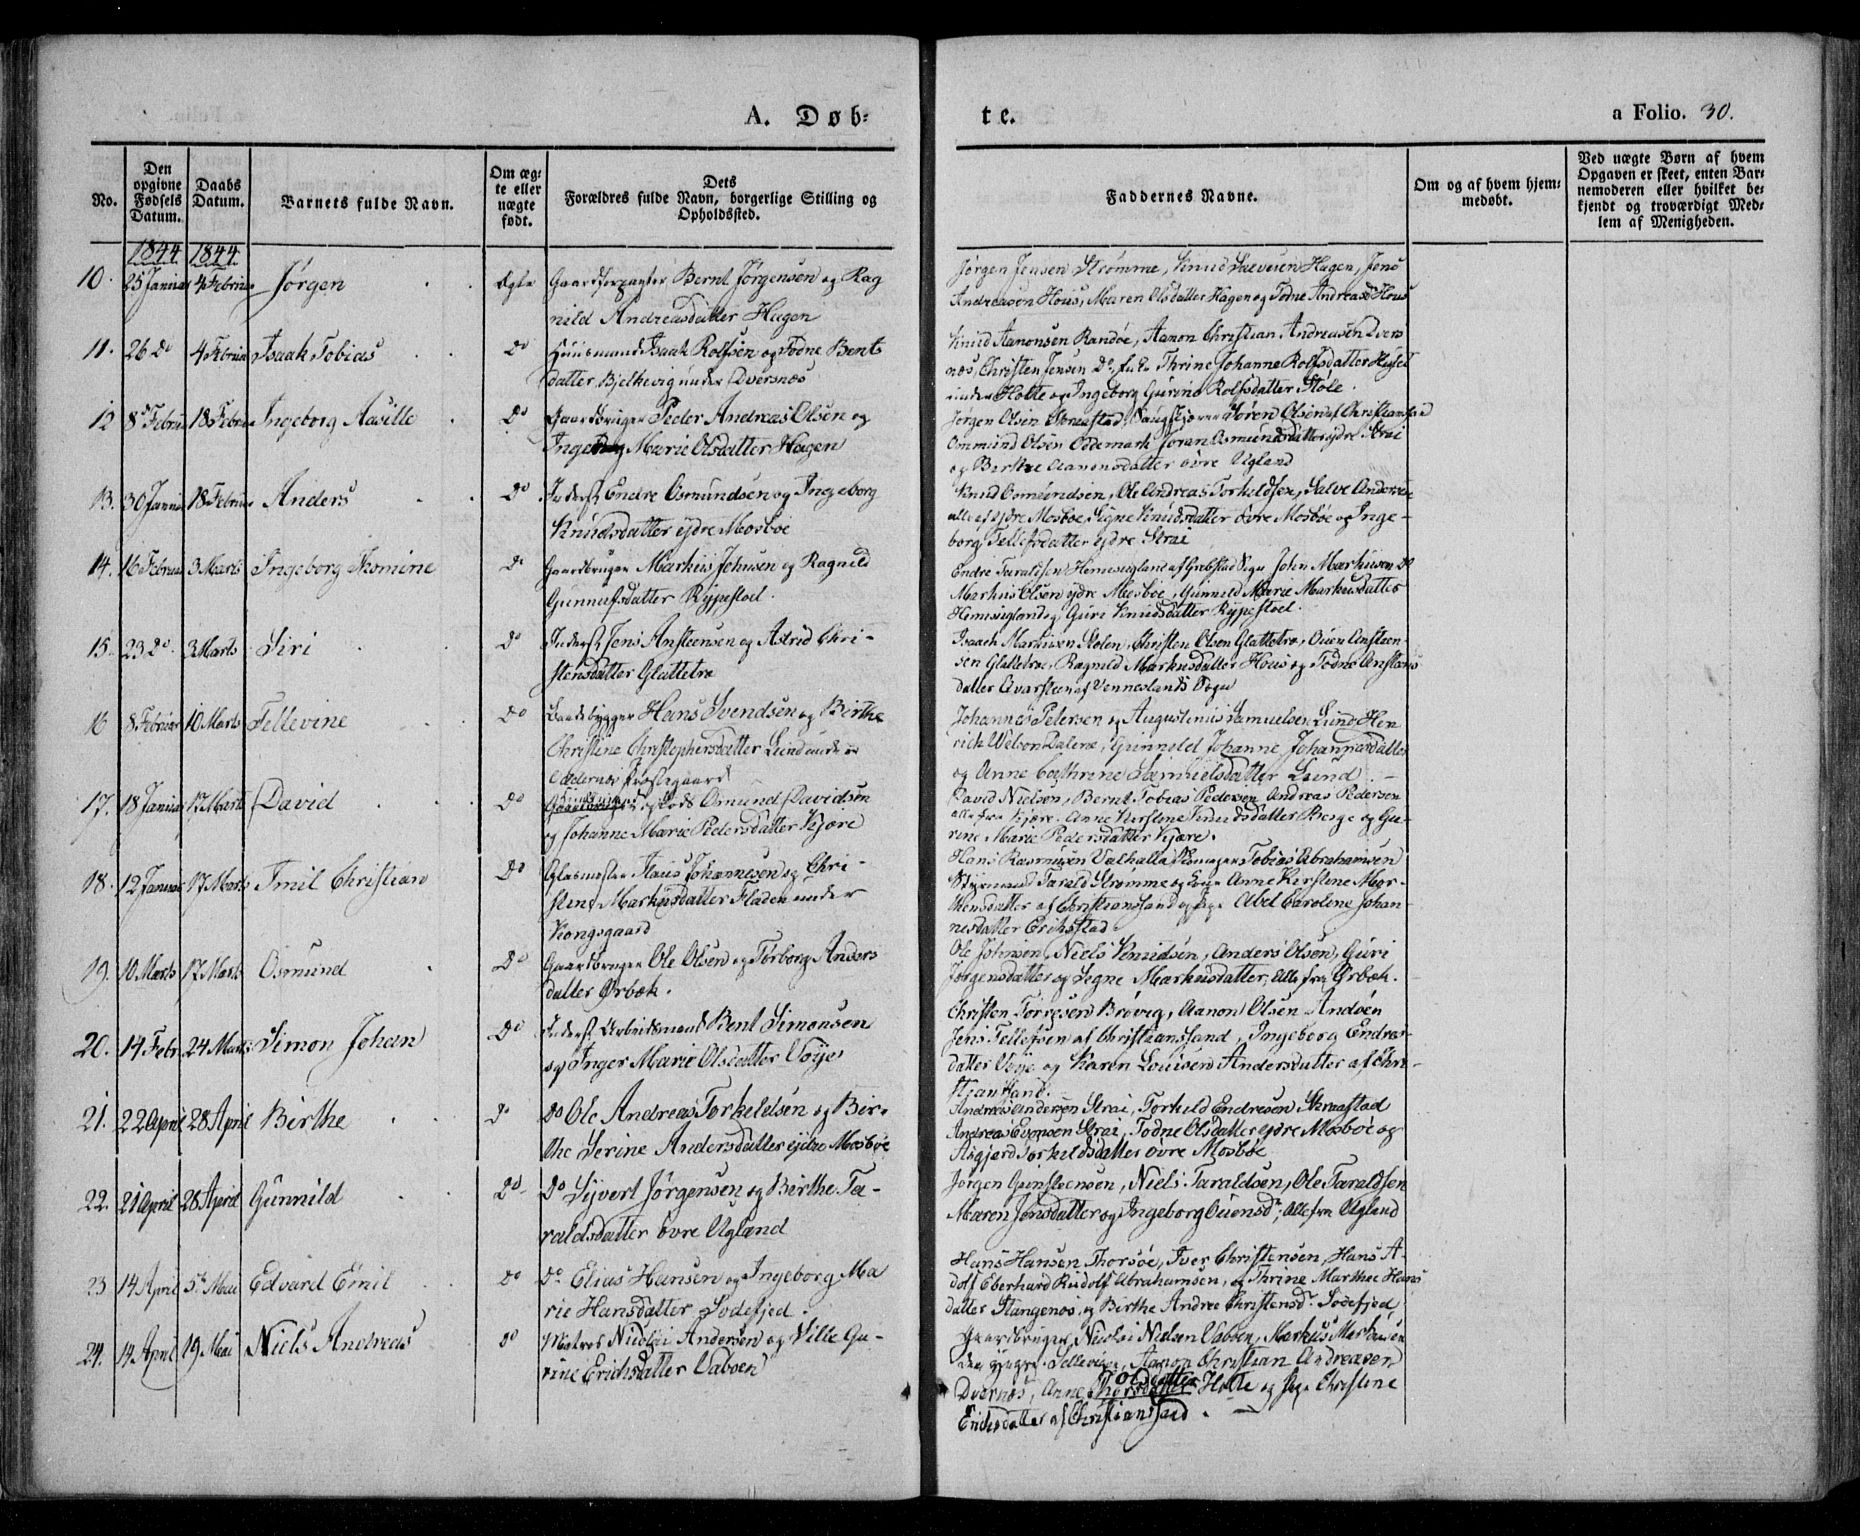 A. Døb-
te.
a Folio. 30.
No.
Den opgivne Fødsels Datum.
Daabs Datum.
Barnets fulde Navn.
Om ægte eller nægte født.
Dets Forældres fulde Navn, borgerlige Stilling og Opholdssted.
Faddernes Navne.
Om og af hvem hjemmedøbt.
Ved nægte Børn af hvem Opgaven er skeet, enten Barnemoderen eller hvilket bekjendt og troværdigt Medlem af Menigheden.
1844 1844
10. 25 Januar 4 Februar Jørgen Ægte Gaardforpagter Bernt Jørgensen og Rag
nild Andreasdatter Hagen
Jørgen Jensen Strømme, Knud Salvesen Hagen, Jens
Andreasen Hous, Maren Olsdatter Hagen og Todne Andreasd. Hous
11. 26 Do 4 Februar Isaak Tobias Do Huusmand Isaak Rolfsen og Todne Bents
datter, Bjelkevig under Dversnæs
Knud Aanonsen Randøe, Aanon Christian Andreasen Dvers
næs, Christen Jensen Do, Thrine Johanne Rolfsdatter
under Holte og Ingeborg Gurine Rolfsdatter Støle.
12 8 Februar 18 Februar Ingeborg Aasille Do Gaardbruger Peder Andreas Olsen og
Ingeborg Marie Olsdatter Hagen
Jørgen Olsen Skraastad, Søren Olsen af Christiansand
Ommund Olsen Oddemark Joran Osmundsdatter ydre Strai
og Birthe Aanonsdatter øvre Ugland
13. 30 Januar 18 Februar Anders Do Inderst Endre Osmundsen og Ingeborg
Knudsdatter ydre Mosbøe
Knud Osmundsen, Ole Andreas Torkeldsen, Salve Andersen
alle af ydre Mosbøe, Signe Knudsdatter øvre Mosbøe og Inge-
borg Tellefsdatter ydre Strai
14. 16 Februar 3 Marts Ingeborg Thomine Do Gaardbruger Markus Johnsen og Ragnild
Gunnufsdatter Rypestad.
Endre Taraldsen Homesugland af Greibstad Sogn John Markusen Do
Markus Olsen ydre Mosbøe, Gunnild Marie Markusdatter
og Guri Knudsdatter Rypestad.
15. 23 Do 3 Marts Siri Do Inderst Jens Ansteensen og Astrid Chri-
stensdatter Glattetre
Isaach Markusen Stolen, Christen Olsen Glattetre, Ouen Ansteen-
sen Glattetre, Ragnild Markusdatter Hous og Todne Anstens
datter Qvarsteen af Venneslands Sogn
16 8 Februar 10 Marts Tellevine Do Baadebygger Hans Svendsen og Birthe
Christine Christophersdatter Lund under
Oddernæs Præstegaard
Johannes Petersen og Augustinus Samuelsen Lund Hen
rich Welson Dalene, Gunnild Johanne Johannesdatter
og Anne Cathrine Samuelsdatter Lund.
17. 18 Januar 17 Marts David Do Osmund Davidsen
og Johanne Marie Pedersdatter Kjære
David Nielsen, Bernt Tobias Pedersen Andreas Pedersen
alle fra Kjære. Anne Kirstene Knudsdatter Berge og Gu-
rine Marie Pedersdatter Kjære.
18. 12 Januar 17 Marts Emil Christian Do Glasmester Klaus Johannesen og Chri-
stene Markusdatter Fladen under
Kongsgaard
Hans Rasmusen Valhalla Tobias Abrahamsen
Styrmand Tarald Strømme og Kone Anne Kirstene Mor-
tensdatter af Christianssand og Pige Abel Caroline Johan-
nesdatter Erikstad.
19. 10 Marts 17 Marts Osmund Do Gaardbruger Ole Olsen og Torborg Anders
datter Ørbæk.
Ole Johnsen, Niels Knudsen, Anders Olsen, Guri
Jørgensdatter og Segne Markusdatter, Alle fra Ørbæk.
20. 14 Febr 24 Marts Simon Johan Do Inderst Arbeidsmand Bent Simonsen
og Inger Marie Olsdatter Voye
Christen Torresen Brøvig, Aanon Olsen Andøen
Jens Tellefsen af Christianssand, Ingeborg Endres-
datter Voye og Karen Louise Andersdatter af Chri-
stjansand.
21. 22 April 28 April Birthe Do Do Ole Andreas Torkeldsen og Bir-
the Serine Andersdatter ydre Mosbøe
Andreas Andersen Strai, Torkeld Endresen Skraastad
Andreas Evensen Strai, Todne Olsdatter ydre Mosbøe og
Asgjerd Torkeldsdatter øvre Mosbøe
22. 21 April 28 April Gunnild Do Do Syvert Jørgensen og Birthe Ta-
raldsdatter øvre Ugland
Jørgen Gunsteensen, Niels Taraldsen, Ole Taraldsen
Maren Jensdatter og Ingeborg Ouensd., Alle fra Ugland
23 14 April 5 Mai Edvard Emil Do Do Elias Hansen og Ingeborg Ma
rie Hansdatter Sodefjed.
Hans Hansen Thorsøe, Iver Christensen, Hans A-
dolf Eberhard Rudolf Abrahamsen, og Thrine Marthee Hans
datter Stangenæs, og Birthe Andree Christensd. Sodefjed,
24. 14 April 19 Mai Niels Andreas Do Matros Nicolai Andersen og Ville Gu-
rine Erichsdatter Vaboen
Gaardbruger Nicolai Nielsen Vaboen, Markus Markusen
den yngre Aanon Christian Andreasen
Dversnæs, Anne Holte og Pige Christine
Erichsdatter af Christianssand.